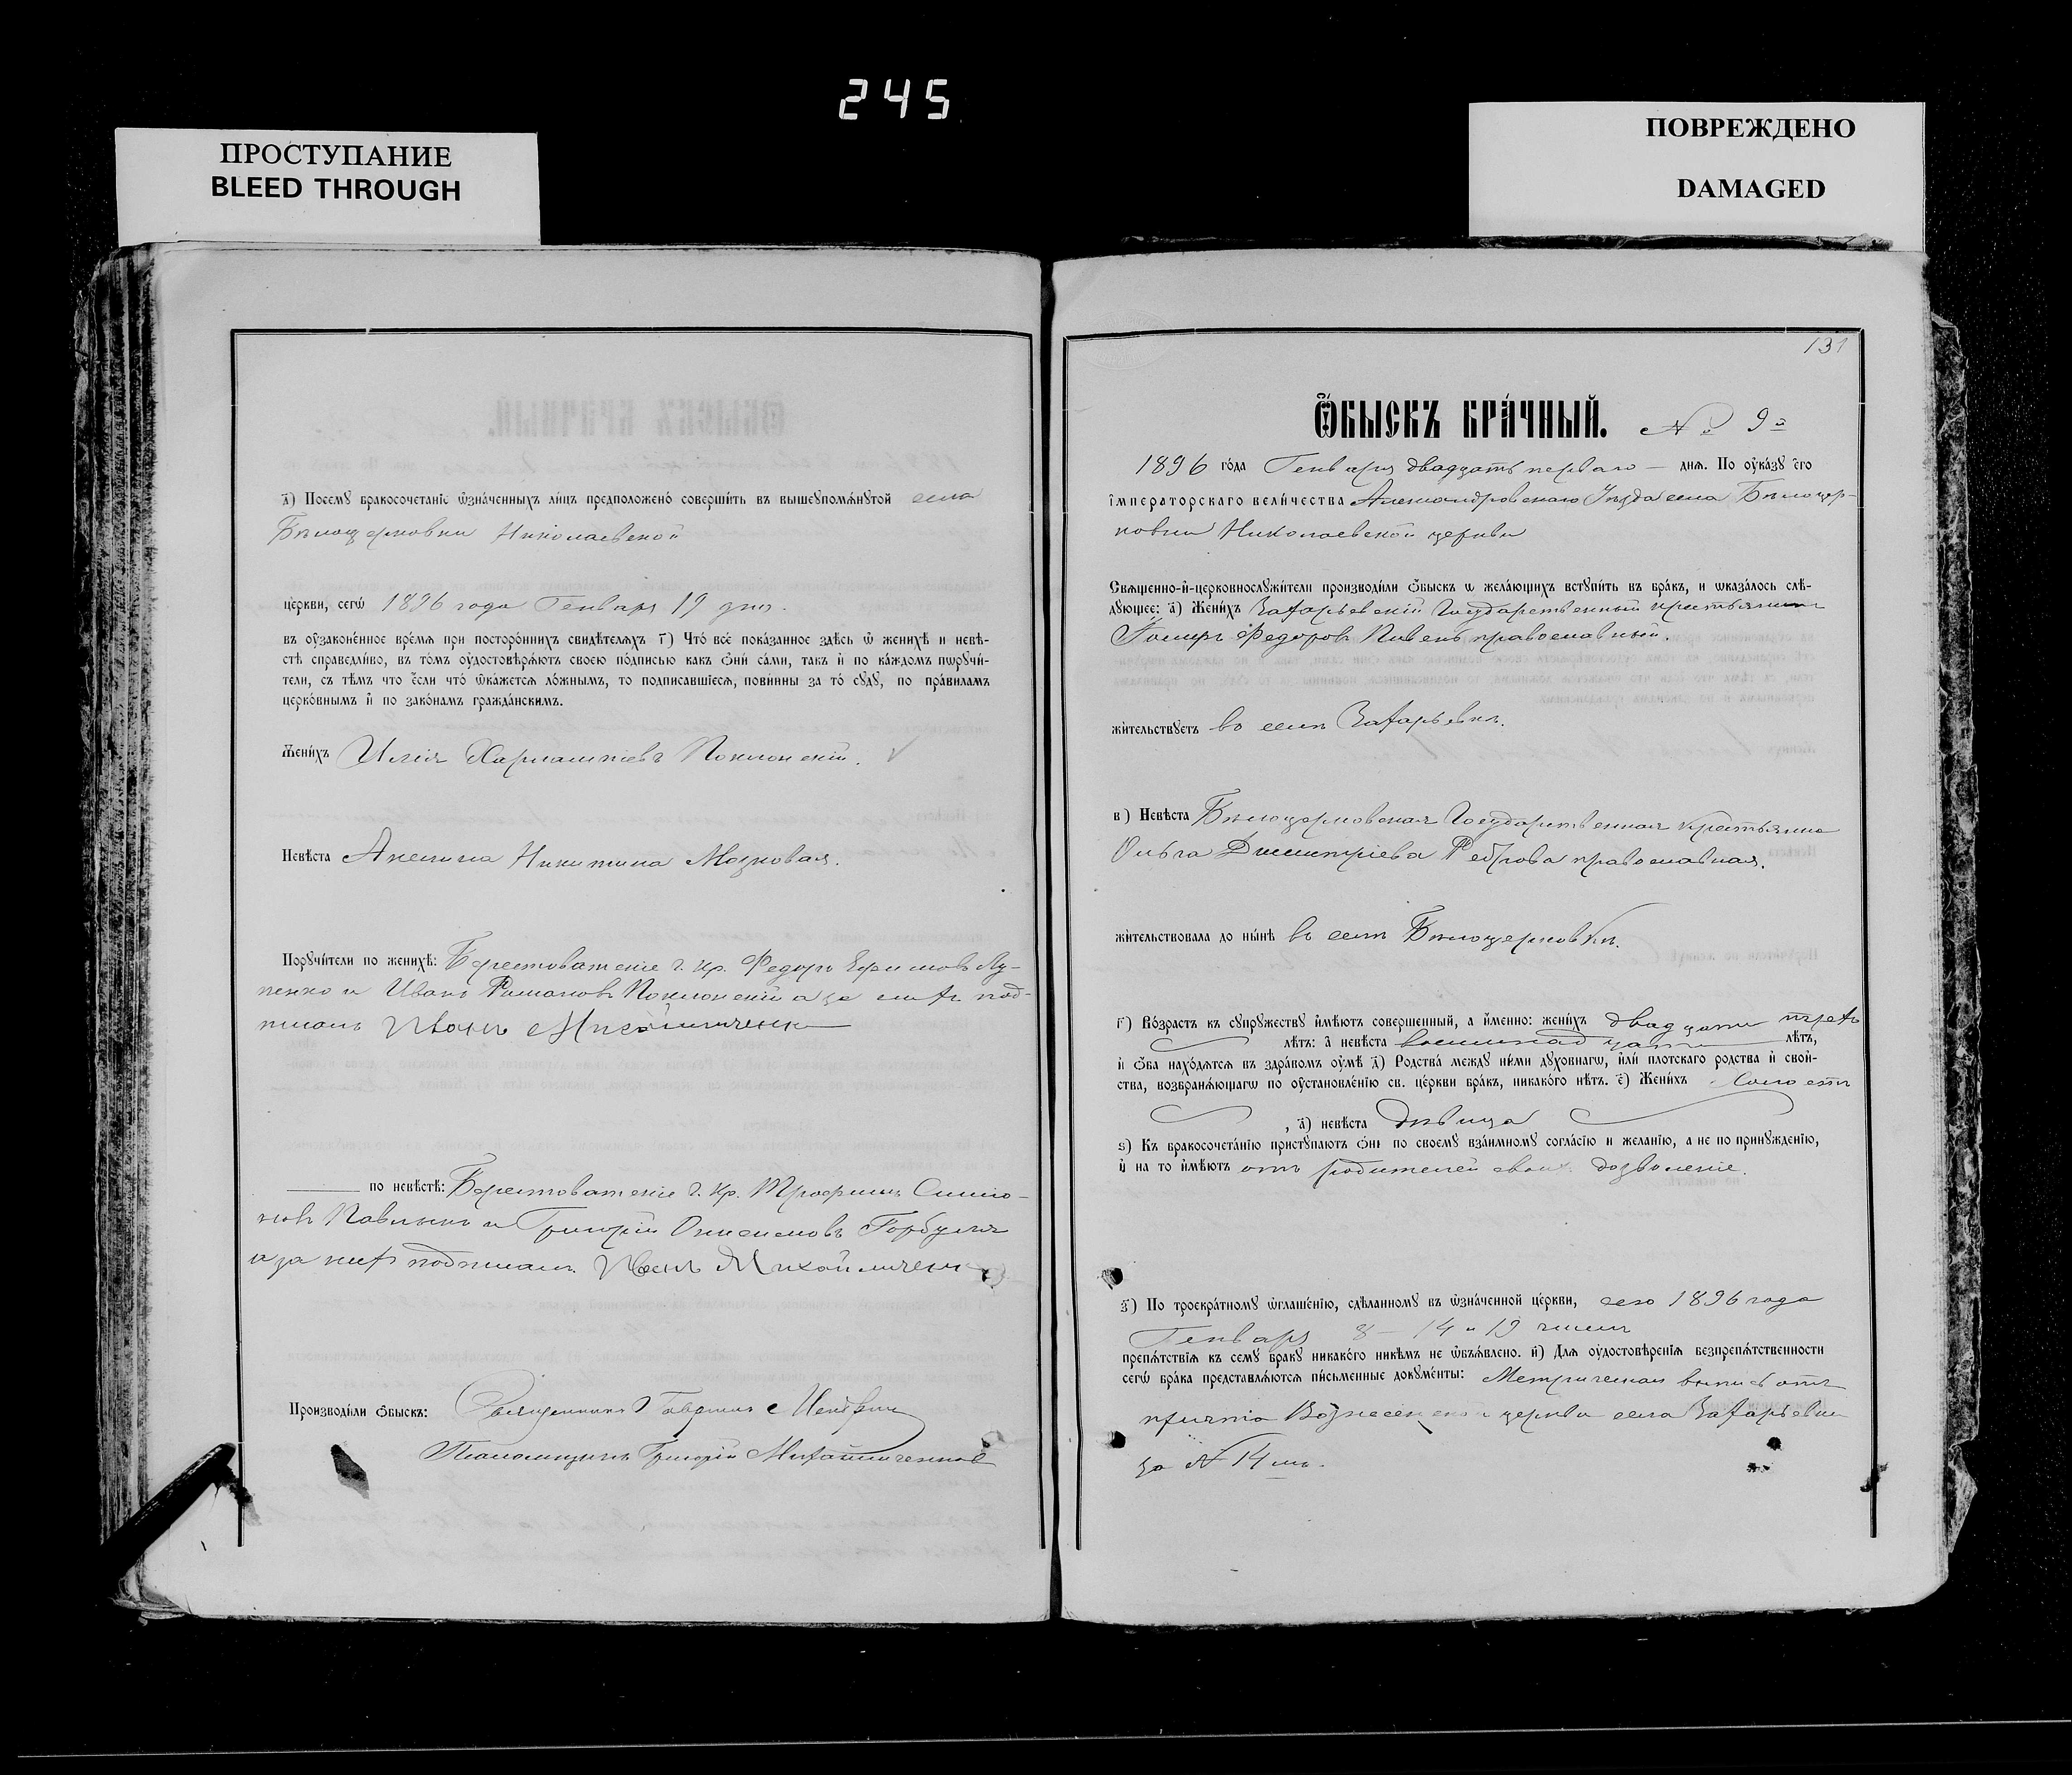 245
ПРОСТУПАНИЕ
BLEED THROUGH
ПОВРЕЖДЕНО
DAMAGED
д҃) Посемꙋ бракосочетаніе ѡ҆зна́ченныхъ ли́цъ предположено̀ соверши́ть въ вышеꙋпомѧ́нꙋтой села
Бѣлоцерковки Николаевской
це́ркви, сегѡ̀ 1896 года Генваря 19 дня.
въ ᲂу҆зако́ненное вре́мѧ при посторо́ннихъ свидѣтелѧхъ г҃) Что̀ всѐ пока́занное здѣсь ѡ҆ женихѣ̀ и невѣ-
стѣ справедли́во, въ то́мъ ᲂу҆достовѣрѧ́ютъ своею по́дписью какъ ѻ҆нѝ са́ми, такъ и҆ по ка́ждомъ пѡрꙋчи́-
тели, съ тѣ́мъ что є҆сли что̀ ѡ҆ка́жетсѧ ло́жнымъ, то подписавшіесѧ, пови́нны за то̀ сꙋдꙋ̀, по пра́виламъ
церко́внымъ и҆ по зако́намъ гражда́нскимъ.
Жени́хъ Илія Харлампіевъ Поклонскій.
Невѣ́ста Акилина Никитина Мозковая.
Порꙋчи́тели по женихѣ̀: Берестоватскіе г. кр. Федоръ Ефимовъ Лу-
ценко и Иванъ Романовъ Поклонскій а за нихъ под-
писалъ Иванъ Михайличенко
по невѣ́стѣ: Берестоватскіе г. кр. Трофимъ Симо-
новъ Павленко и Григорій Онисимовъ Горбуля
а за нихъ подписалъ Иванъ Михайличенко
Производи́ли ѻ҆быскъ: Священникъ Гавриилъ
Псаломщикъ Григорій Михайличенко
131
Ѻ҆БЫСКЪ БРА́ЧНЫЙ. № 9й
1896 го́да Генваря двадцать перваго — днѧ. По ᲂу҆ка́зꙋ є҆го
і҆мператорскаго вели́чества Александровскаго Уѣзда села Бѣлоцер-
ковки Николаевской церкви
Свѧщенно-и҆-церковнослꙋжи́тели производи́ли ѻ҆быскъ ѡ҆ жела́ющихъ встꙋпи́ть въ бра́къ, и ѡ҆каза́лось слѣ́-
дꙋющее: а҃) Жени́хъ Захарьевскій Государственный крестьянинъ
Федоровъ Пивень православный.
жи́тельствꙋетъ во селѣ Захарьевкѣ.
в҃) Невѣ́ста Бѣлоцерковская Государственная крестьянка
Ольга Димитріева Реброва православная.
жи́тельствовала до ны́нѣ въ селѣ Бѣлоцерковкѣ.
г҃) Во́зрастъ къ сꙋпрꙋ́жествꙋ и҆мѣ́ютъ совершенный, а и҆́менно: жени́хъ двадцати трехъ
лѣ́тъ: а҆ невѣ́ста восемнадцати лѣ́тъ,
и҆ ѻ҆́ба нахо́дѧтсѧ въ здра́вомъ ᲂу҆мѣ̀ д҃) Родства̀ междꙋ̀ ни́ми дꙋхо́внагѡ, и҆лѝ плотскаго родства и҆ свой-
ства, возбранѧ́ющагѡ по ᲂу҆становле́нію св. це́ркви бра́къ, никако́го нѣ́тъ. є҃) Жени́хъ Холостъ
, а҆) невѣ́ста дѣвица
ѕ҃) Къ бракосочета́нію пристꙋпа́ютъ ѻ҆нѝ по своемꙋ̀ взаи́мномꙋ согла́сію и жела́нію, а не по принꙋжде́нію,
и҆ на то и҆мѣ́ютъ отъ родителей своихъ дозволеніе.
з҃) По троекра́тномꙋ ѡ҆глаше́нію, сдѣ́ланномꙋ въ ѡ҆зна́ченной це́ркви, сего 1896 года
Генваря 8 – 14 и 19 чиселъ
препѧ́тствіѧ къ семꙋ̀ бра́кꙋ никако́го никѣ́мъ не ѡ҆б̾ѧ́влено. и҃) Длѧ ᲂу҆достовѣре́нія безпрепѧ́тственности
сегѡ̀ бра́ка представлѧ́ютсѧ пи́сьменные докꙋме́нты: Метрическая выпись отъ
причта Вознесенской церкви села Захарьевки
за № 14 мъ.